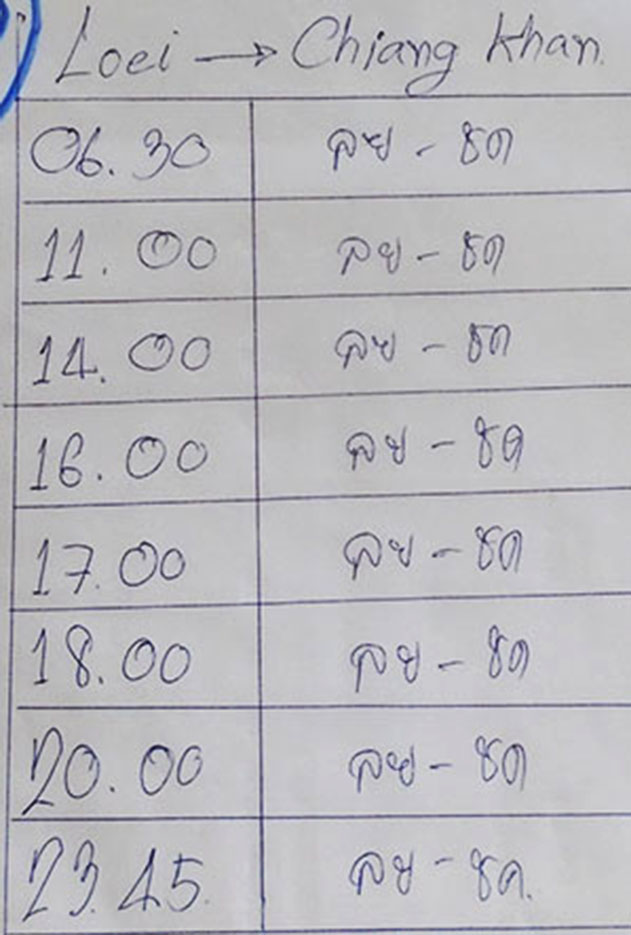 Loei → Chiang Khan
06.30 ลย - ชค
11.00 ลย - ชค
14.00 ลย - ชค
16.00 ลย - ชค
17.00 ลย - ชค
18.00 ลย - ชค
20.00 ลย - ชค
23.45 ลย - ชค.